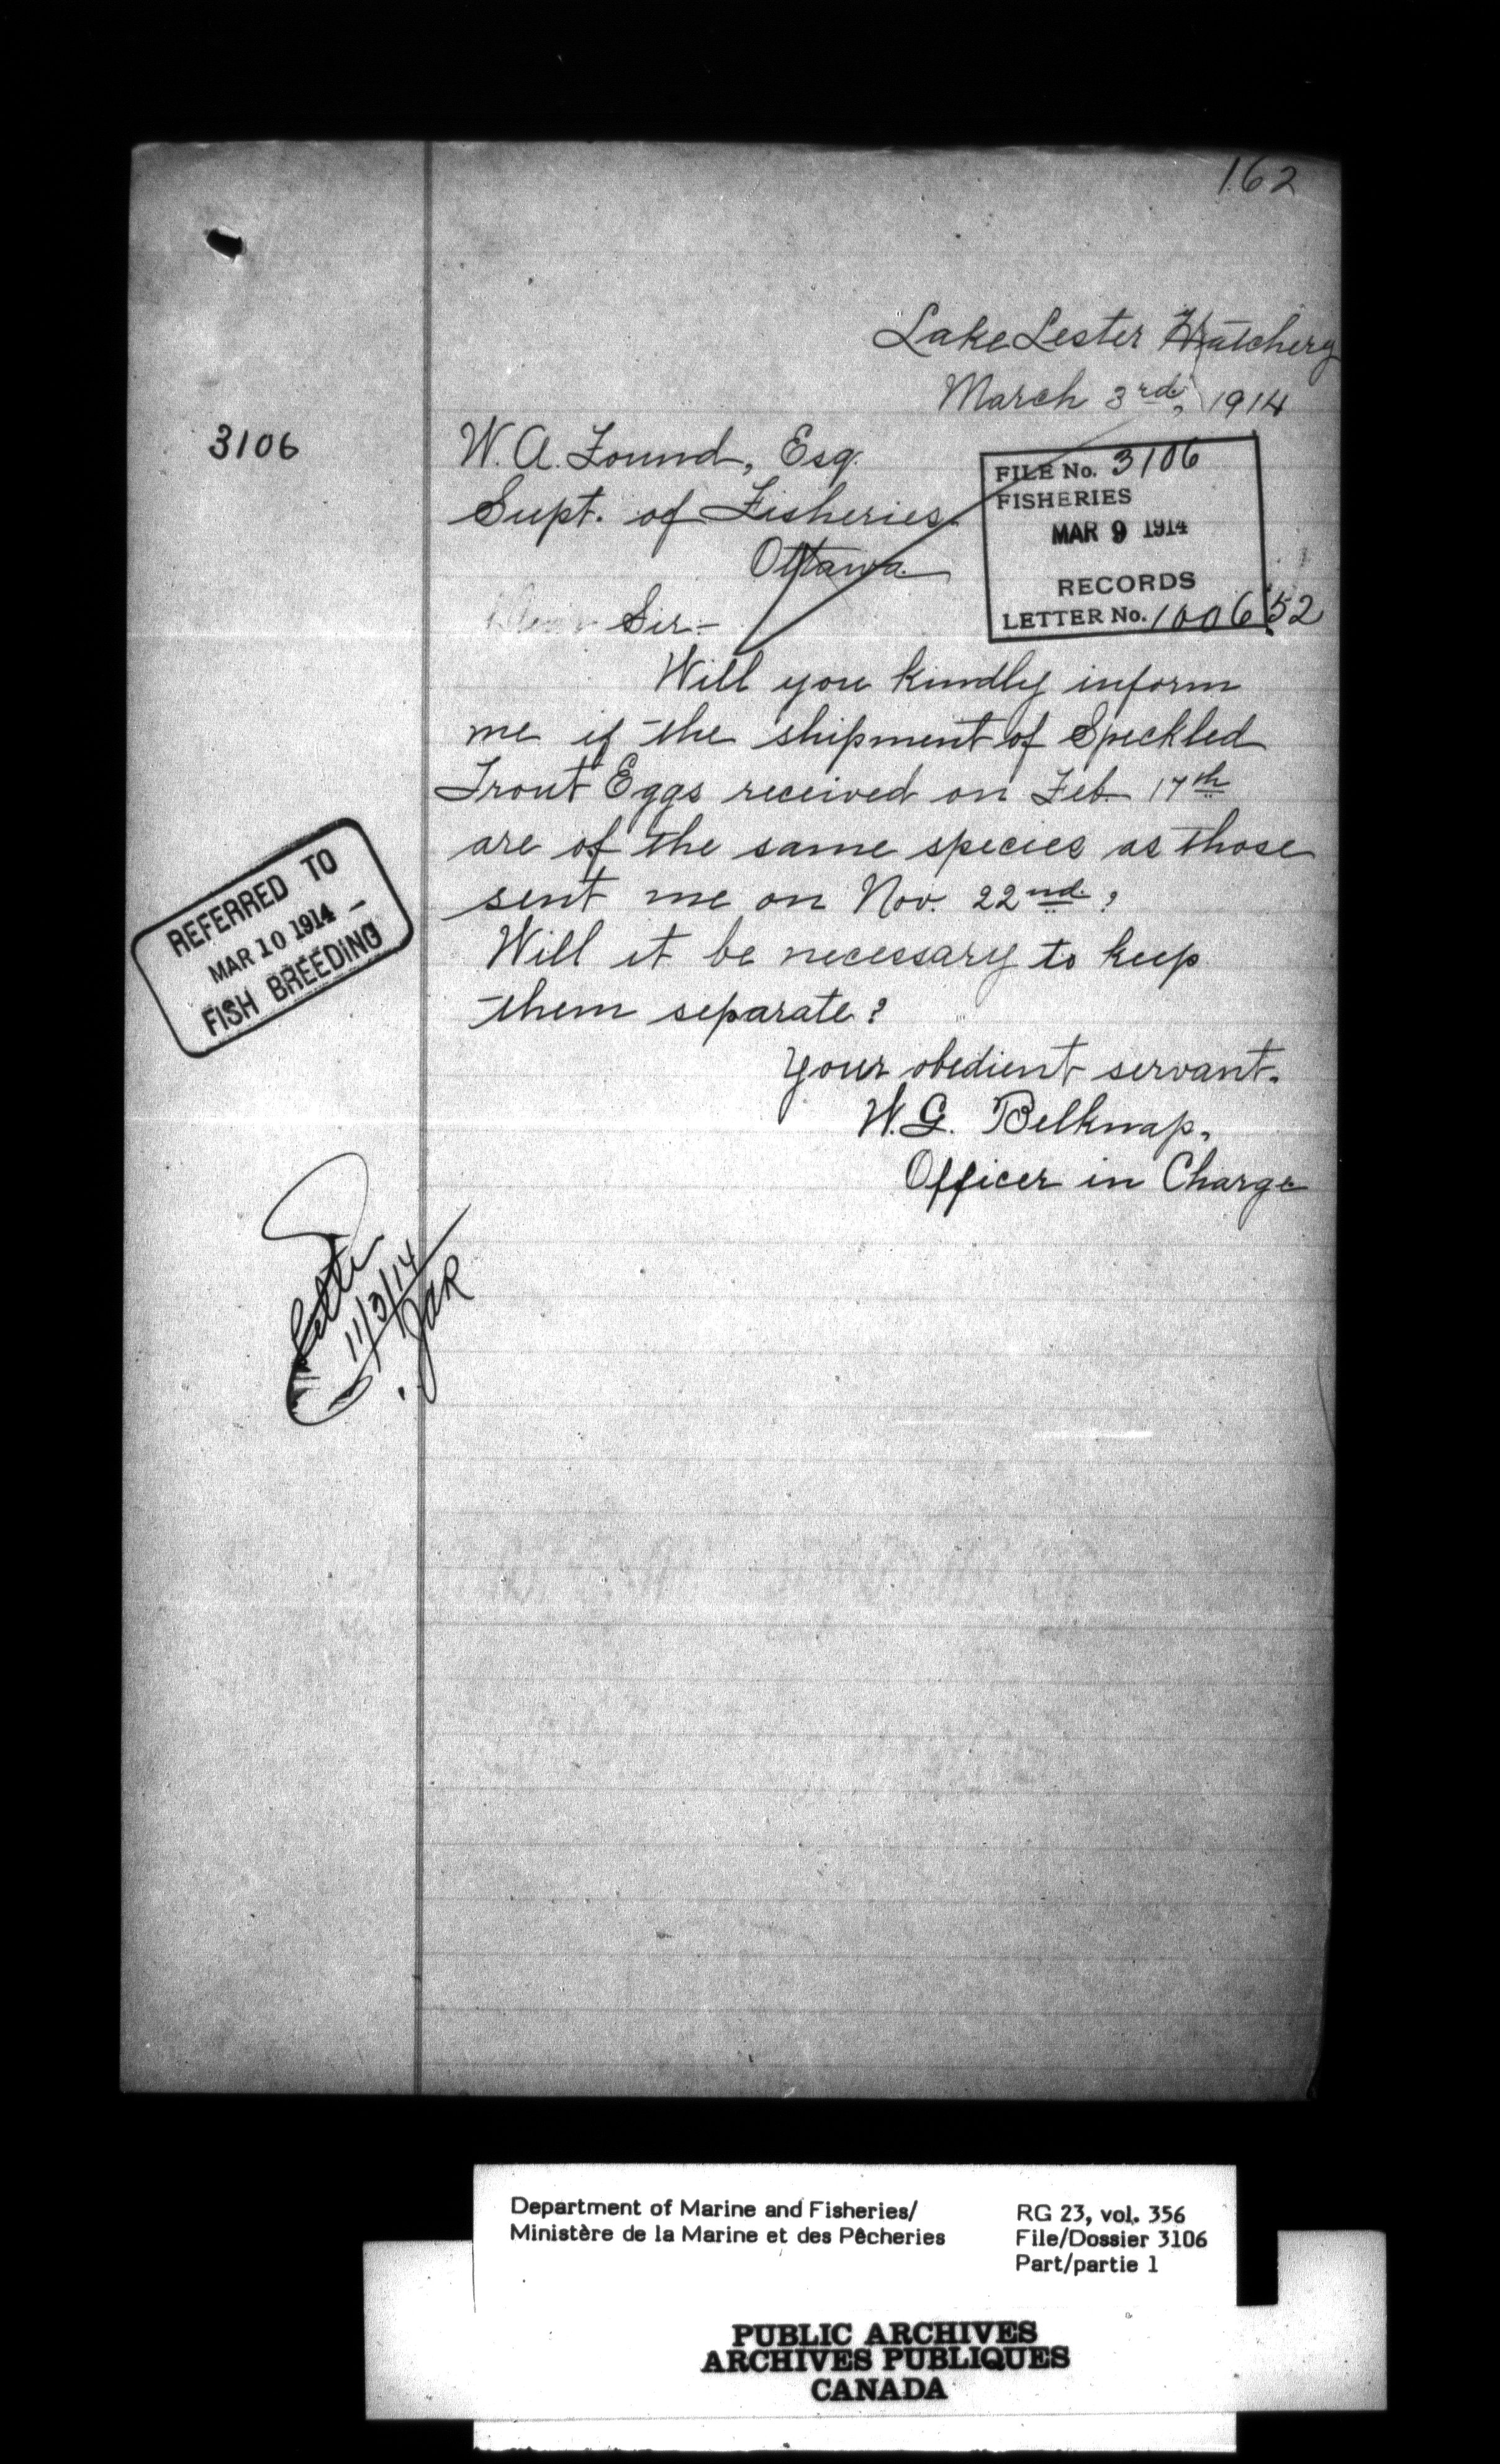 162
Lake Lester Hatchery
March 3rd, 1914
3106
W. A. Found, Esq.
Supt. of Fisheries
Ottawa
FILE No. 3106
FISHERIES
MAR 9 1914
RECORDS
LETTER No. 100652
Dear Sir:-
Will you kindly inform
me if the shipment of Speckled
Trout Eggs received on Feb. 17th
are of the same species as those
sent me on Nov. 22nd?
Will it be necessary to keep
them separate?
Your obedient servant.
W. G. Belknap,
Officer in Charge
REFERRED TO
MAR 10 1914
FISH BREEDING
Letter
11/3/14
JAR
Department of Marine and Fisheries/
Ministère de la Marine et des Pêcheries
RG 23, vol. 356
File/Dossier 3106
Part/partie 1
PUBLIC ARCHIVES
ARCHIVES PUBLIQUES
CANADA